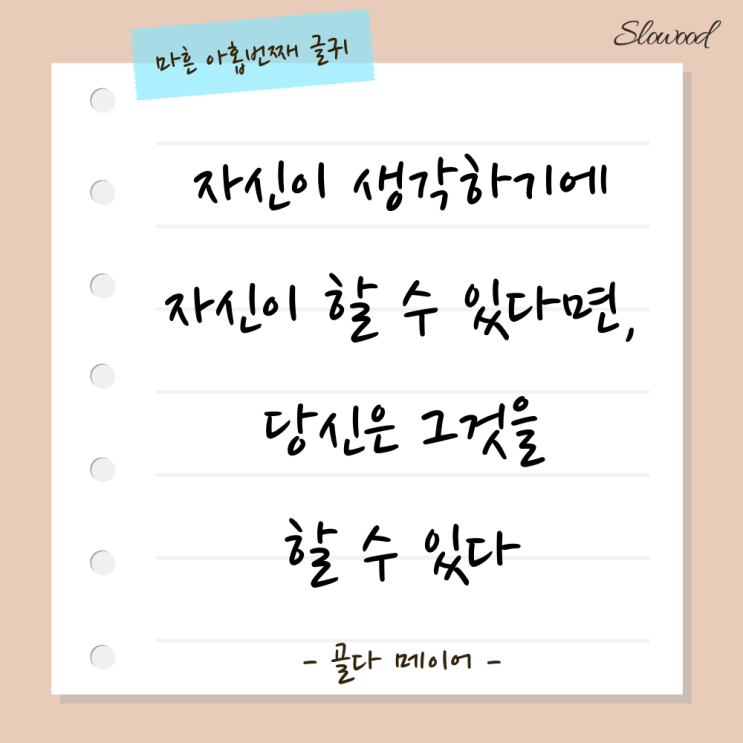 Slowood
마흔 아홉번째 글귀
자신이 생각하기에
자신이 할 수 있다면,
당신은 그것을
할 수 있다
- 골다 메이어 -